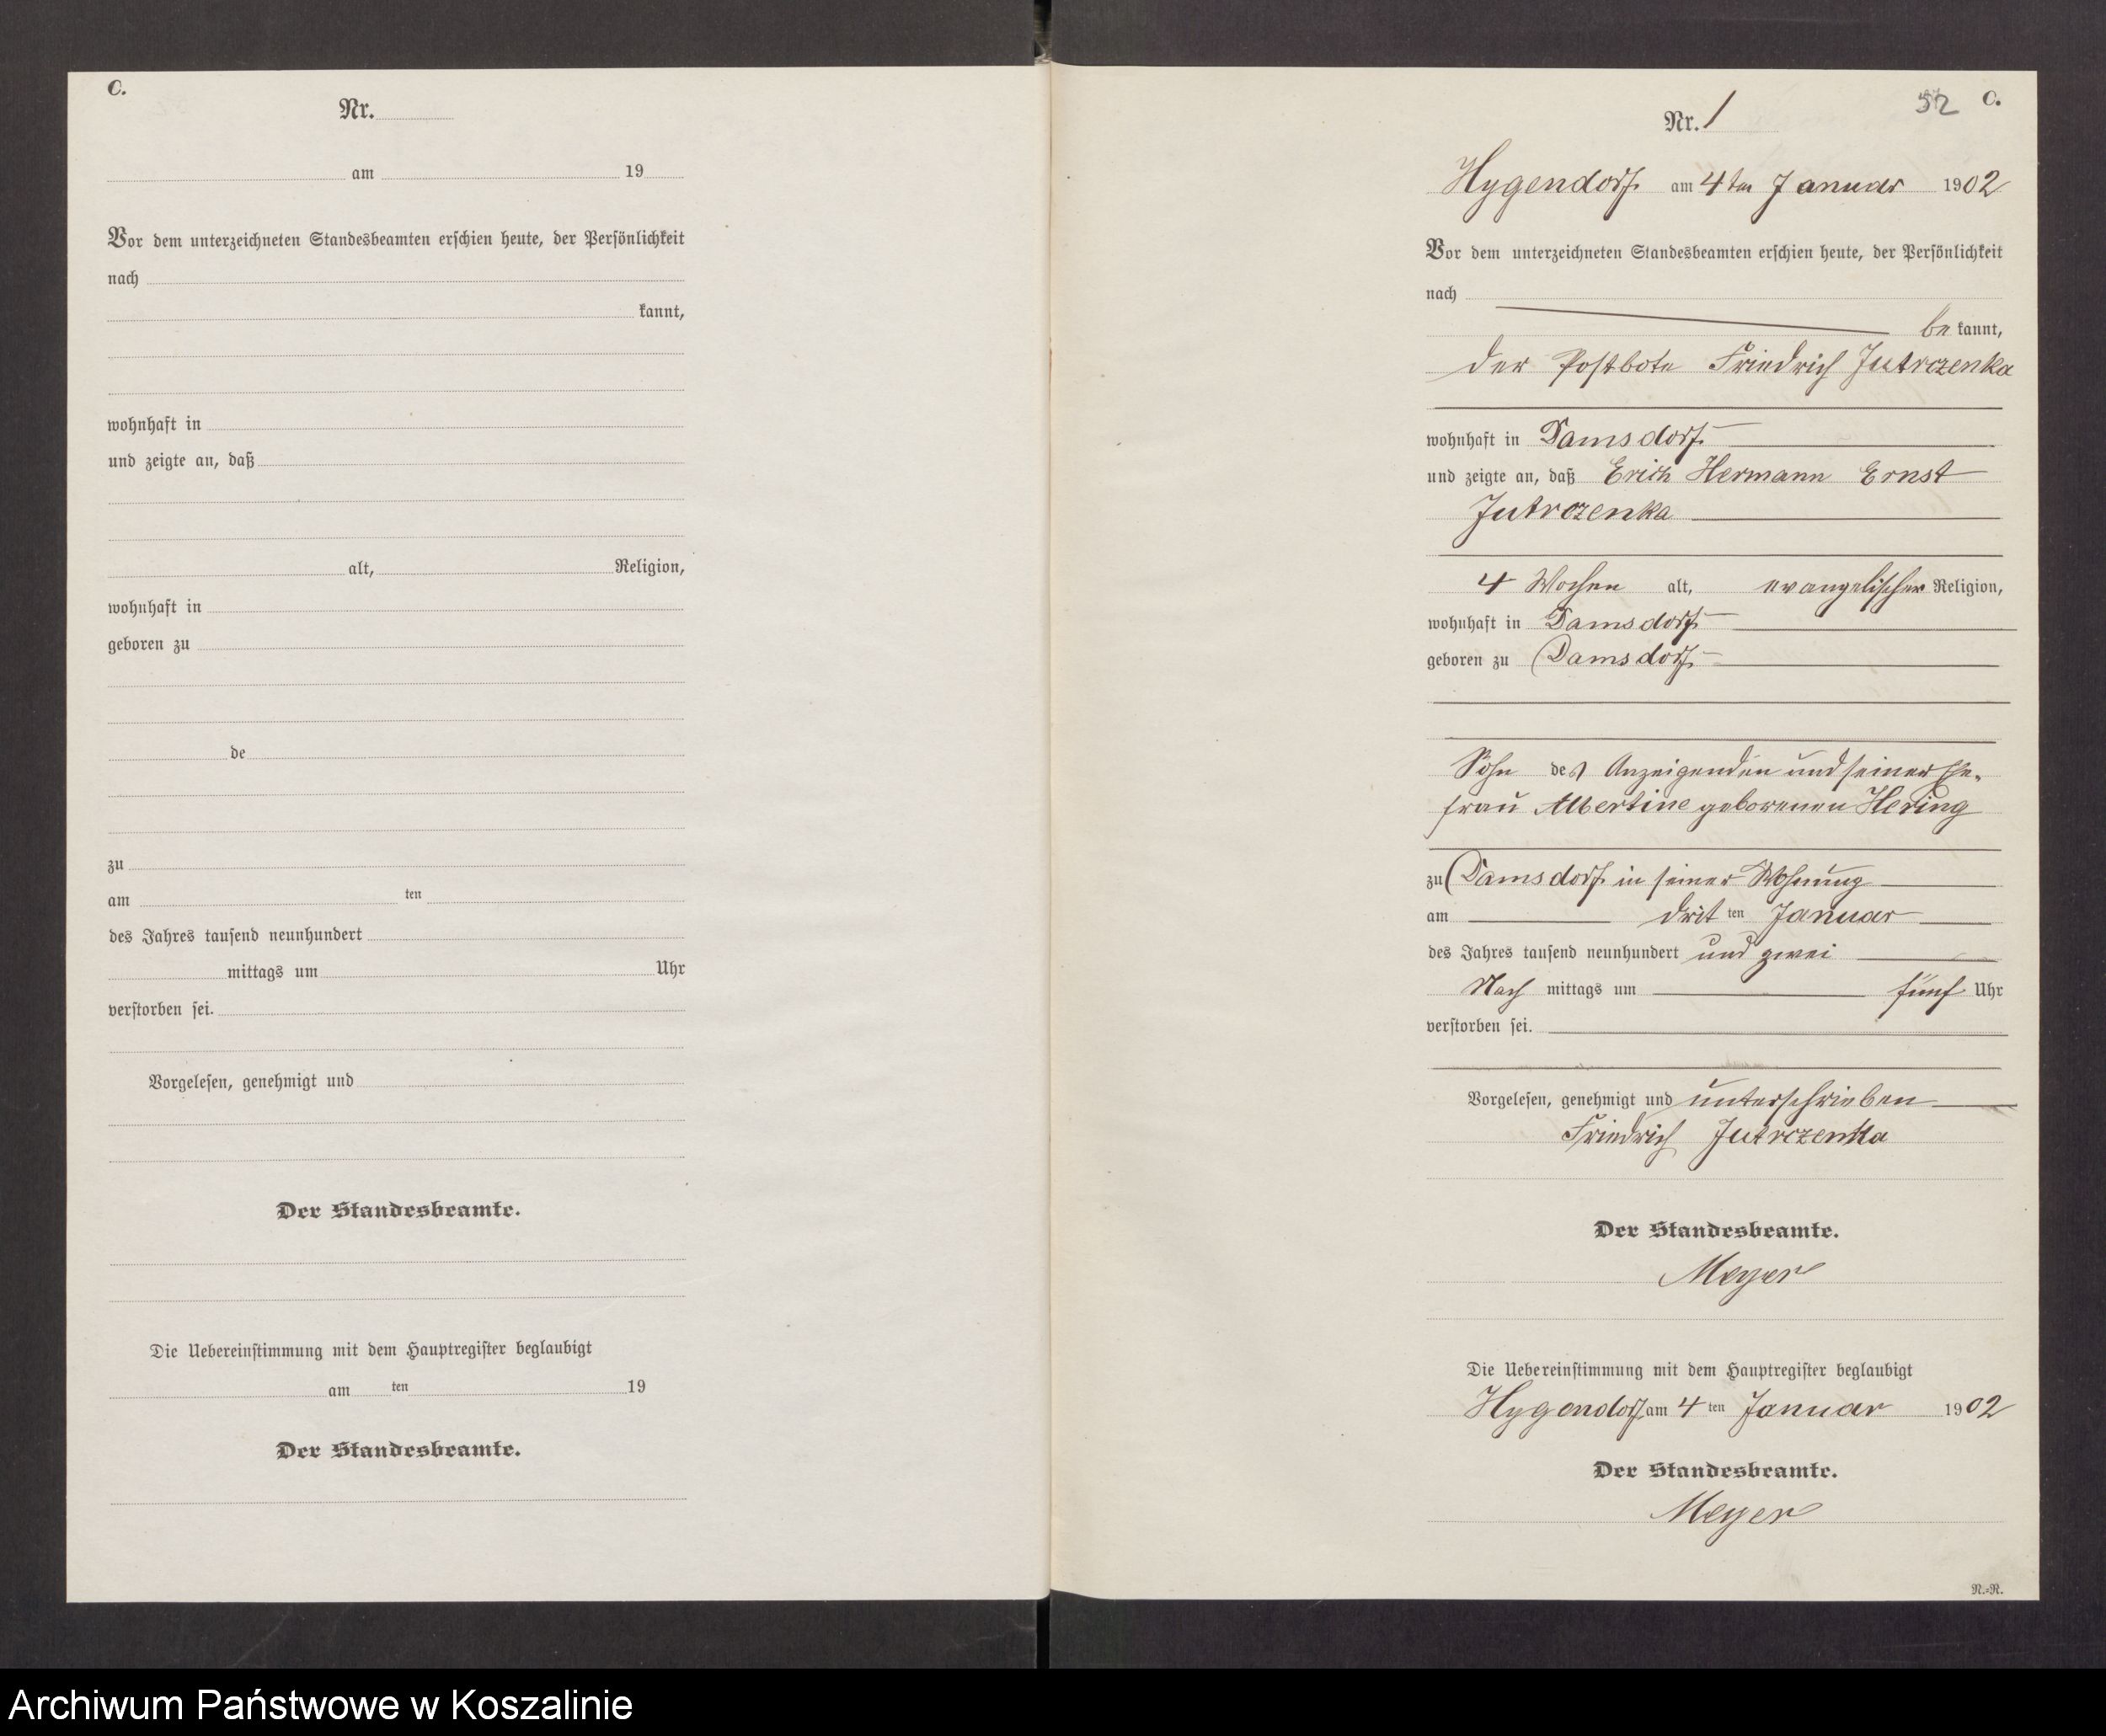 C.
Nr.
am 19
Vor dem unterzeichneten Standesbeamten erschien heute, der Persönlichkeit
nach
kannt,
wohnhaft in
und zeigte an, daß
alt, Religion,
wohnhaft in
geboren zu
de
zu
am ten
des Jahres tausend neunhundert
mittags um Uhr
verstorben sei.
Vorgelesen, genehmigt und
Der Standesbeamte.
Die Uebereinstimmung mit dem Hauptregister beglaubigt
am ten 19
Der Standesbeamte.
52 C.
Nr. 1
Hygendorf am 4ten Januar 1902
Vor dem unterzeichneten Standesbeamten erschien heute, der Persönlichkeit
nach
be kannt,
der Postbote Friedrich Jutrczenka
wohnhaft in Damsdorf
und zeigte an, daß Erich Hermann Ernst
Jutrczenka
4 Wochen alt, evangelischer Religion,
wohnhaft in Damsdorf
geboren zu Damsdorf
Sohn des Anzeigenden und seiner Ehe-
frau Albertine geborenen Hering
zu Damsdorf in seiner Wohnung
am drit ten Januar
des Jahres tausend neunhundert und zwei
Nach mittags um fünf Uhr
verstorben sei.
Vorgelesen, genehmigt und unterschrieben
Friedrich Jutrczenka
Der Standesbeamte.
Meyer
Die Uebereinstimmung mit dem Hauptregister beglaubigt
Hygendorf am 4 ten Januar 1902
Der Standesbeamte.
Meyer
R.=R.
Archiwum Państwowe w Koszalinie